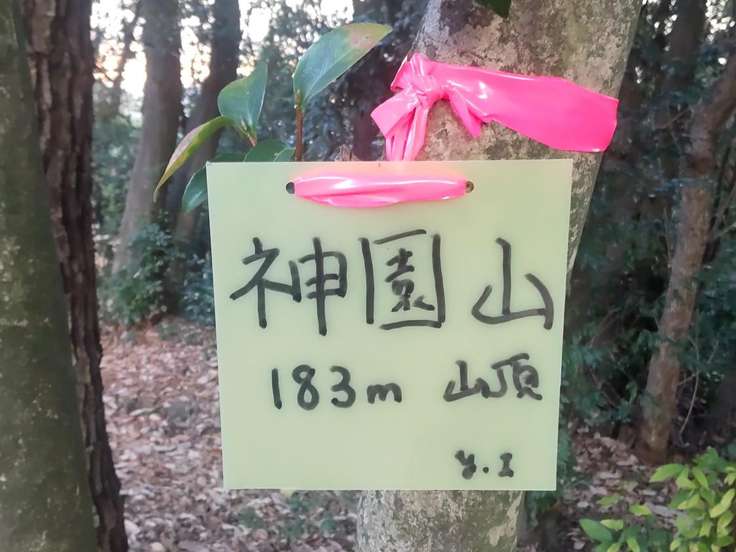 神園山
183m 山頂
y.I